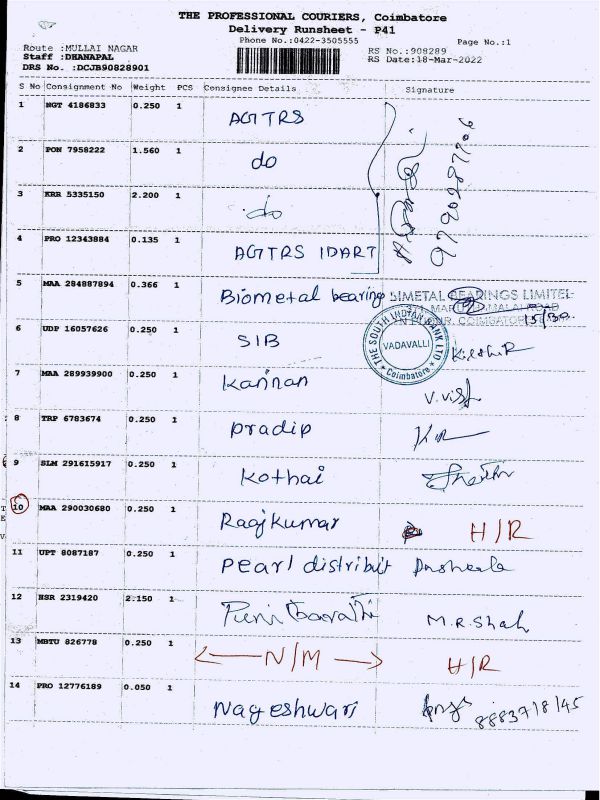 THE PROFESSIONAL COURIERS, Coimbatore
Delivery Runsheet - P41
Phone No.:0422-3505555
Page No.:1
Route :MULLAI NAGAR
RS No.:908289
Staff :DHANAPAL
RS Date:18-Mar-2022
DRS No. :DCJB90828901
S No Consignment No Weight PCS Consignee Details Signature
1 NGT 4186833 0.250 1 AGTTRS
2 PON 7958222 1.560 1 do
3 KRR 5335150 2.200 1 do
4 PRO 12343884 0.135 1 AGTTRS IDART
5 MAA 284887894 0.366 1 Biometal bearing
BIMETAL BEARINGS LIMITED
6 UDP 16057626 0.250 1 SIB
THE SOUTH INDIAN BANK LTD
VADAVALLI
Coimbatore
7 MAA 289939900 0.250 1 Kannan
8 TRP 6783674 0.250 1 pradip
9 SLM 291615917 0.250 1 Kothai
10 MAA 290030680 0.250 1 Raajkumar H/R
11 UPT 8087187 0.250 1 pearl distribut
12 HSR 2319420 2.150 1 M.R.Shah
13 MBTU 826778 0.250 1 N/M H/R
14 PRO 12776189 0.050 1 Nageshwari 8883718145